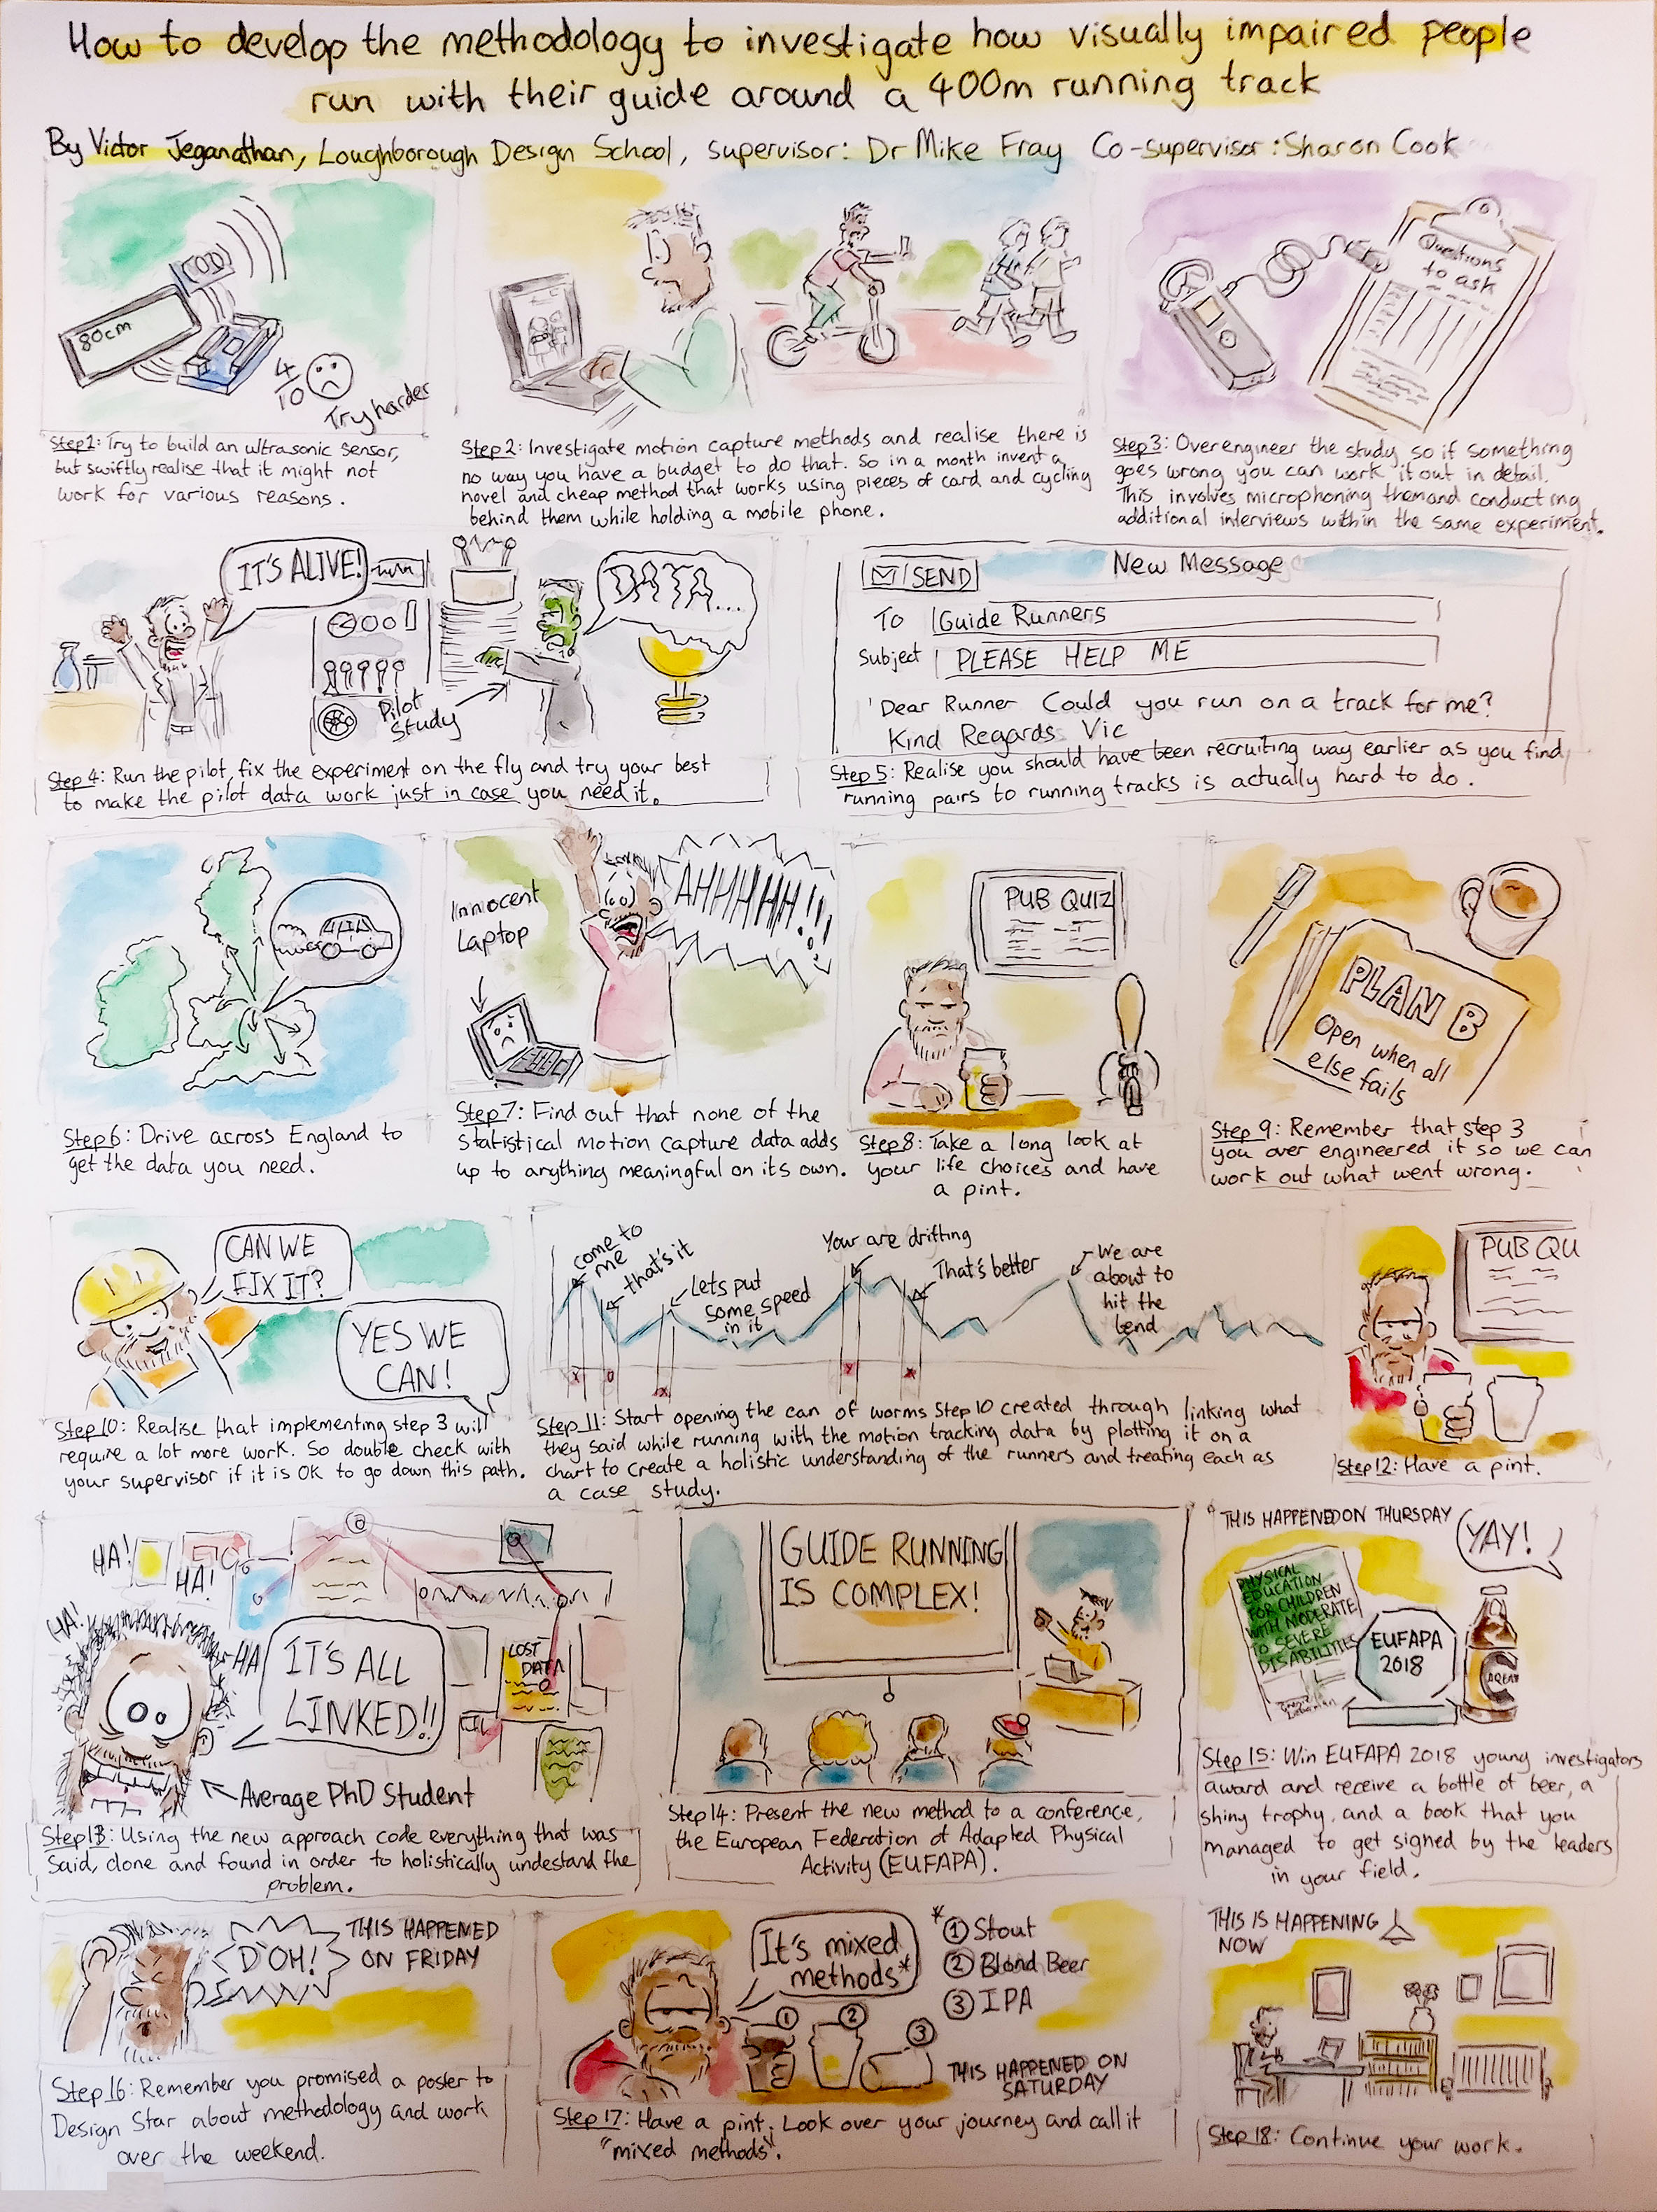 How to develop the methodology to investigate how visually impaired people
run with their guide around a 400m running track
By Victor Jeganathan, Loughborough Design School, supervisor: Dr Mike Fray Co-supervisor: Sharon Cook
80cm
4/10
Try harder
Step 1: Try to build an ultrasonic sensor,
but swiftly realise that it might not
work for various reasons.
Step 2: Investigate motion capture methods and realise there is
no way you have a budget to do that. So in a month invent a
novel and cheap method that works using pieces of card and cycling
behind them while holding a mobile phone.
Questions
to ask
Step 3: Overengineer the study, so if something
goes wrong you can work it out in detail.
This involves microphoning them and conducting
additional interviews within the same experiment.
IT'S ALIVE!
DATA....
Pilot
Study
Step 4: Run the pilot, fix the experiment on the fly and try your best
to make the pilot data work just in case you need it.
New Message
SEND
To Guide Runners
Subject PLEASE HELP ME
'Dear Runner Could you run on a track for me?
Kind Regards Vic
Step 5: Realise you should have been recruiting way earlier as you find
running pairs to running tracks is actually hard to do.
Step 6: Drive across England to
get the data you need.
Innocent
Laptop
AHHHHH!!!
Step 7: Find out that none of the
statistical motion capture data adds
up to anything meaningful on its own.
PUB QUIZ
Step 8: Take a long look at
your life choices and have
a pint.
PLAN B
Open when all
else fails
Step 9: Remember that step 3
you over engineered it so we can
work out what went wrong.
CAN WE
FIX IT?
YES WE
CAN!
Step 10: Realise that implementing step 3 will
require a lot more work. So double check with
your supervisor if it is OK to go down this path.
come to
me
that's it
Lets put
some speed
in it
Your are drifting
That's better
We are
about to
hit the
bend
Step 11: Start opening the can of worms Step 10 created through linking what
they said while running with the motion tracking data by plotting it on a
chart to create a holistic understanding of the runners and treating each as
a case study.
PUB QU
Step 12: Have a pint.
HA!
HA!
HA!
HA
IT'S ALL
LINKED!!
LOST
DATA
Average PhD Student
Step 13: Using the new approach code everything that was
said, done and found in order to holistically undestand the
problem.
GUIDE RUNNING
IS COMPLEX!
Step 14: Present the new method to a conference,
the European Federation of Adapted Physical
Activity (EUFAPA).
THIS HAPPENED ON THURSDAY
YAY!
PHYSICAL
EDUCATION
FOR CHILDREN
WITH MODERATE
TO SEVERE
DISABILITIES
EUFAPA
2018
Step 15: Win EUFAPA 2018 young investigators
award and receive a bottle of beer, a
shiny trophy, and a book that you
managed to get signed by the leaders
in your field.
D'OH!
THIS HAPPENED
ON FRIDAY
Step 16: Remember you promised a poster to
Design Star about methodology and work
over the weekend.
It's mixed
methods*
* ① Stout
② Blond Beer
③ IPA
1
2
3
THIS HAPPENED ON
SATURDAY
Step 17: Have a pint. Look over your journey and call it
"mixed methods".
THIS IS HAPPENING
NOW
Step 18: Continue your work.